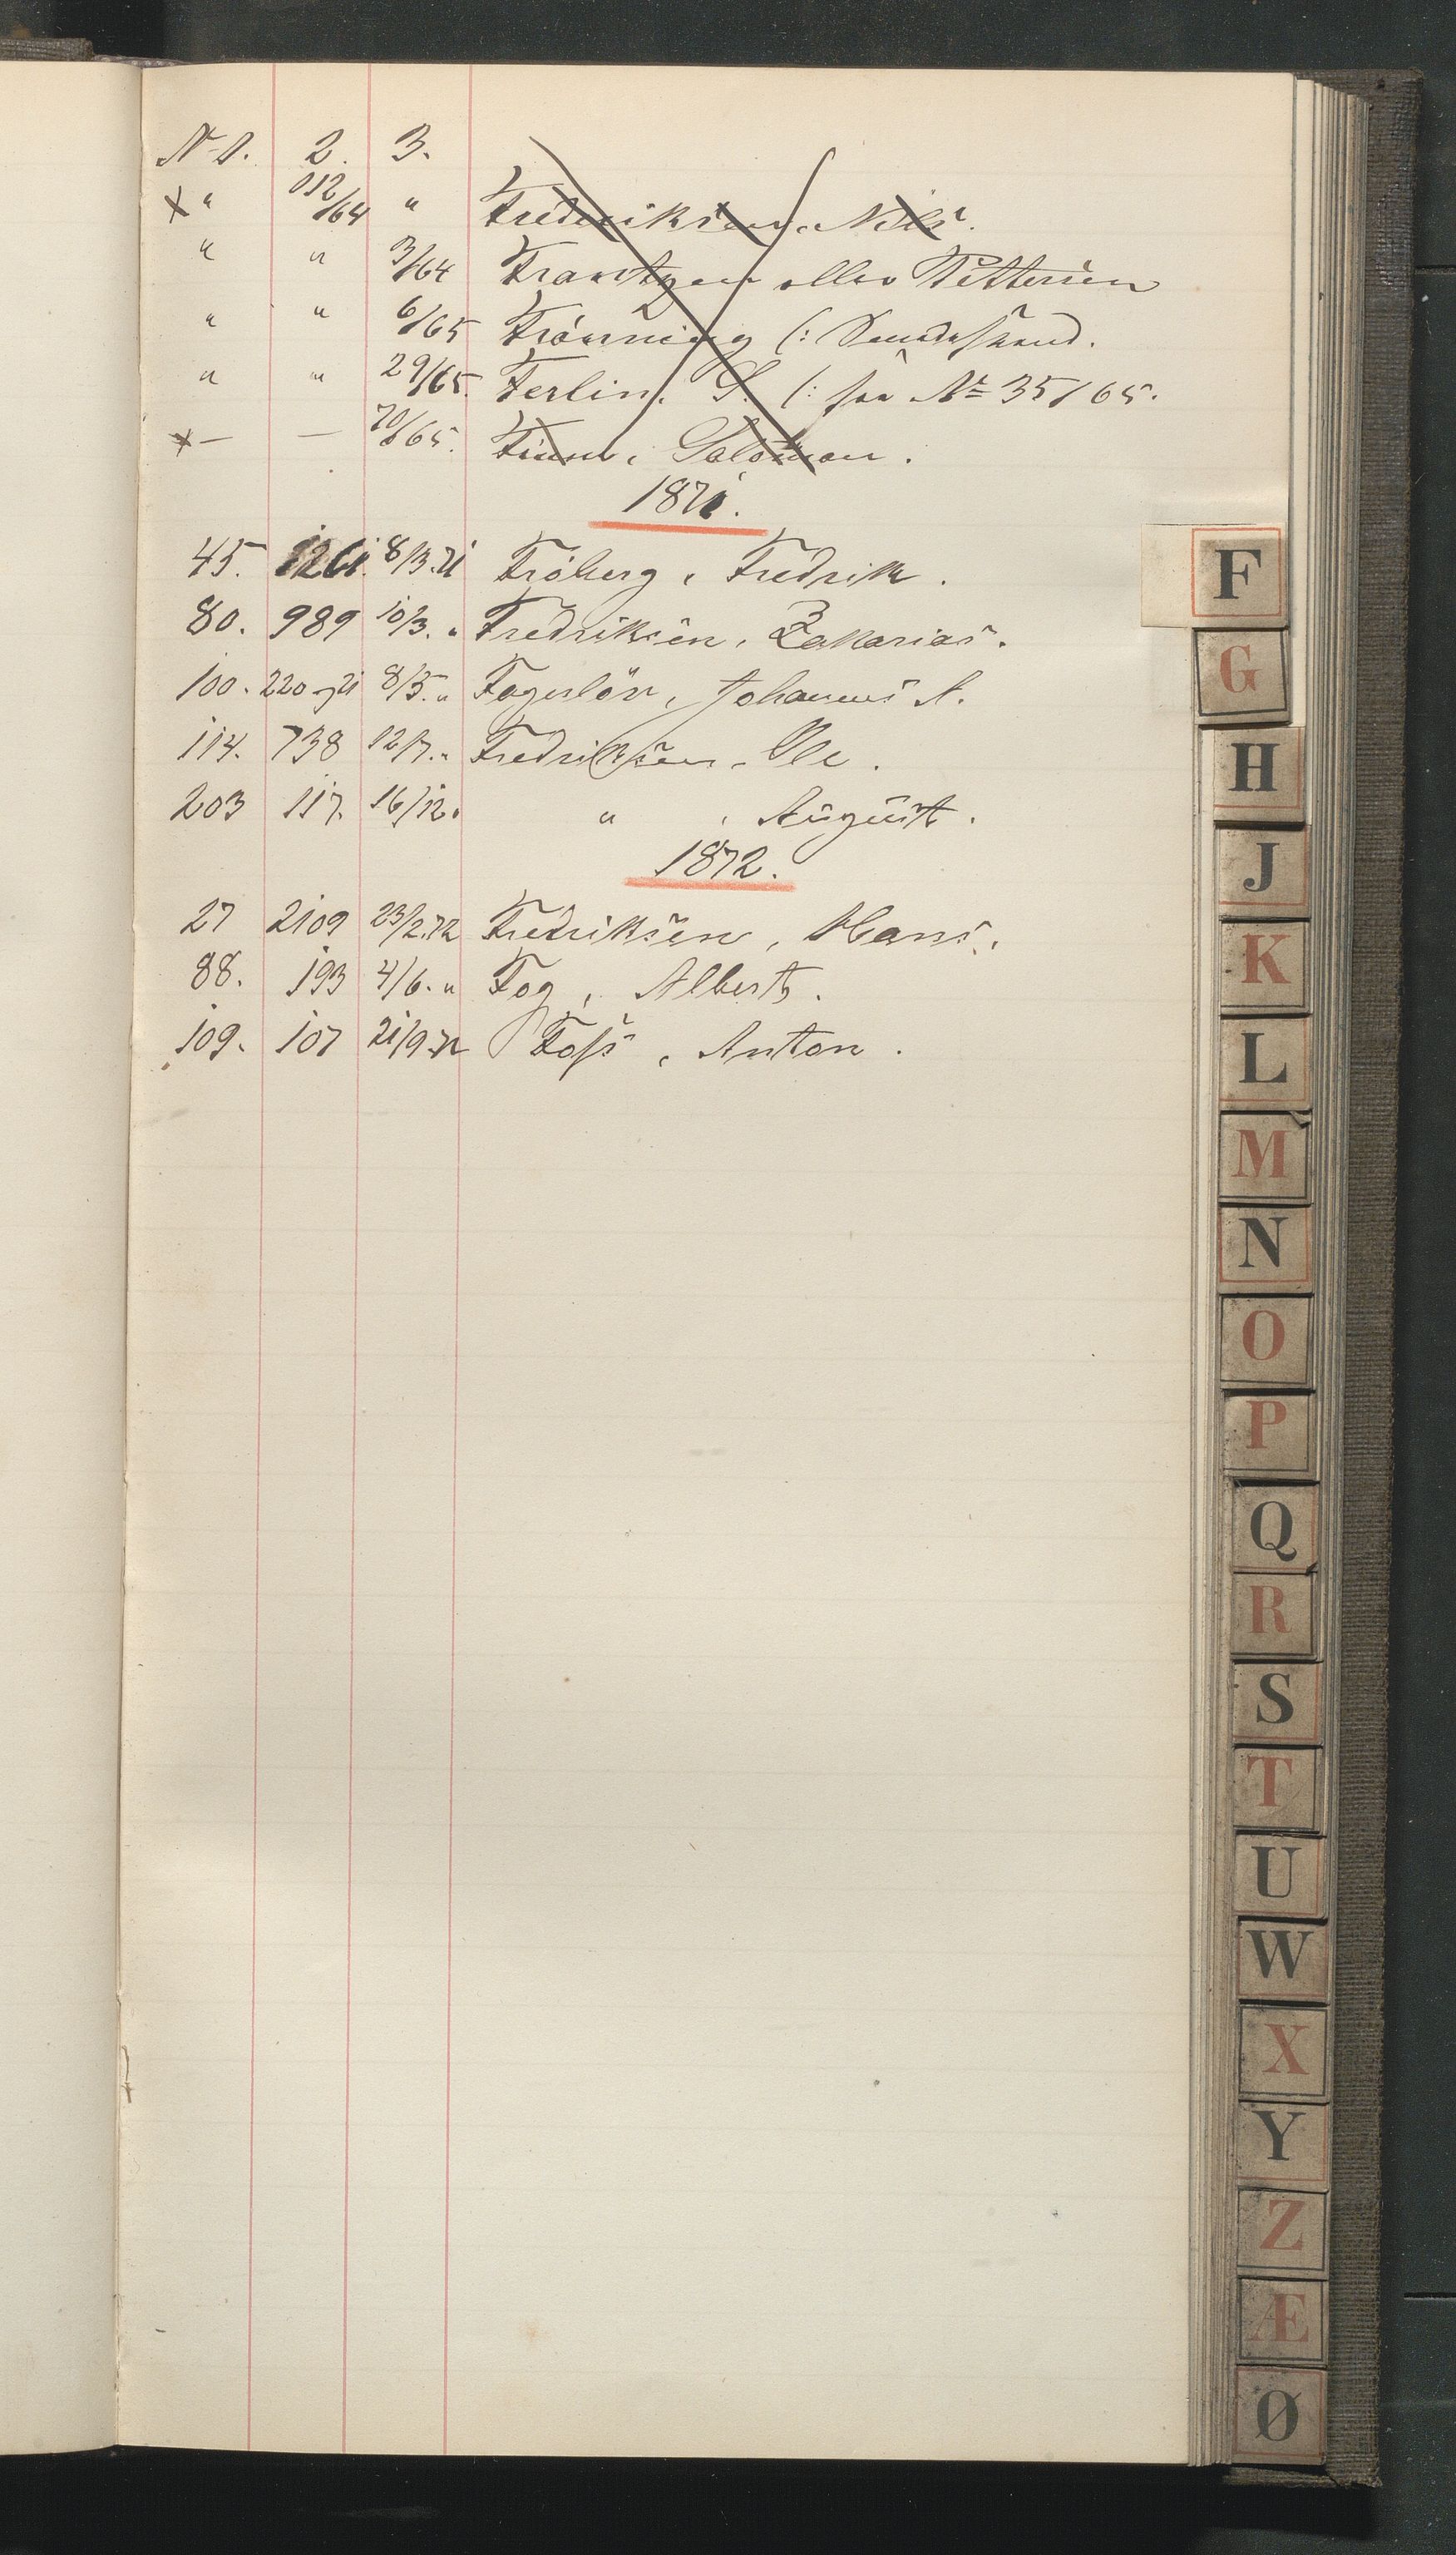 N 1. 2. 3.
× " 112/64 " Frederiksen, Nils.
" " 3/64 Frantzen eller Pettersen
" " 6/65 Frönning (:
" " 29/65. Ferlin, S. (: see No 35/65.
× — — 70/65. Finn, Salomon.
1871.
45. 1261. 8/3.71 Fröberg, Fredrik.
80. 989 10/3. " Fredriksen, Zakarias.
100. 220-71 8/5. " Fagerlöv, Johannes A.
114. 738 12/7. " Fredriksen, Ole.
203 117. 16/12. " , August.
1872.
27 2109 23/2.72 Fredriksen, Hans.
88. 193 4/6. " Fog, Albert.
109. 107 21/9.72 Foss, Anton.
F
G
H
J
K
L
M
N
O
P
Q
R
S
T
U
W
X
Y
Z
Æ
Ø